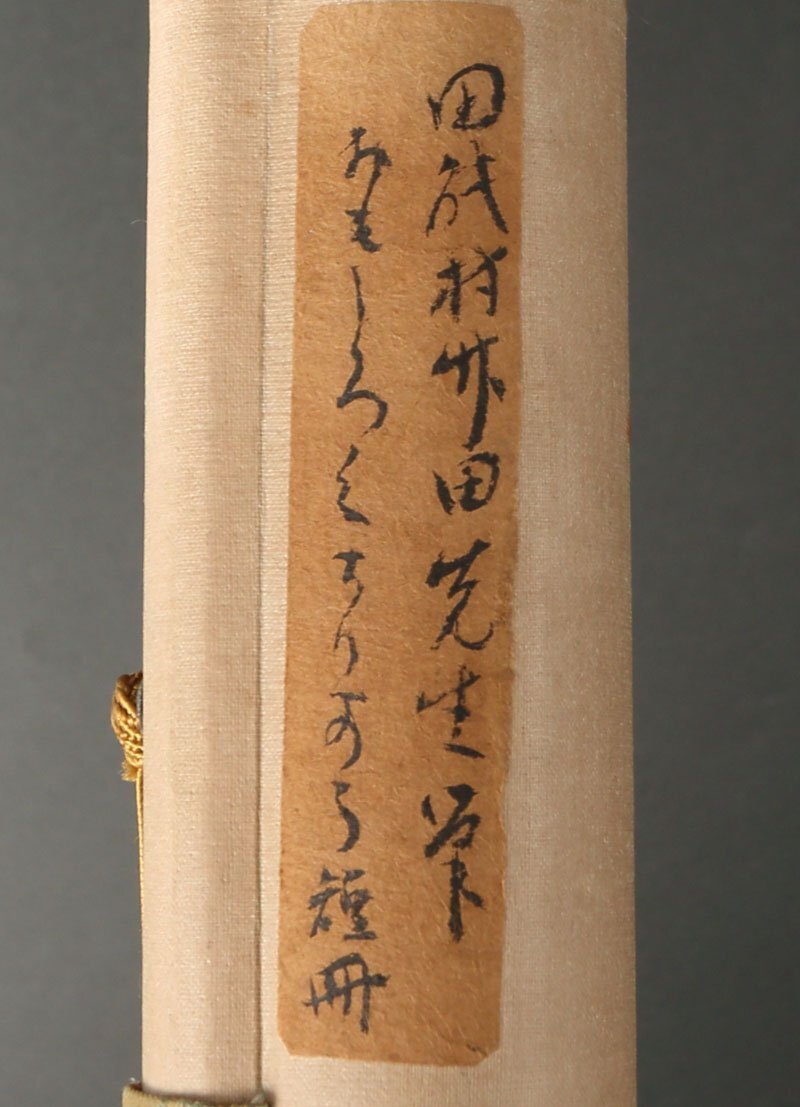 田能村竹田先生筆
おもしろくちりのう短冊